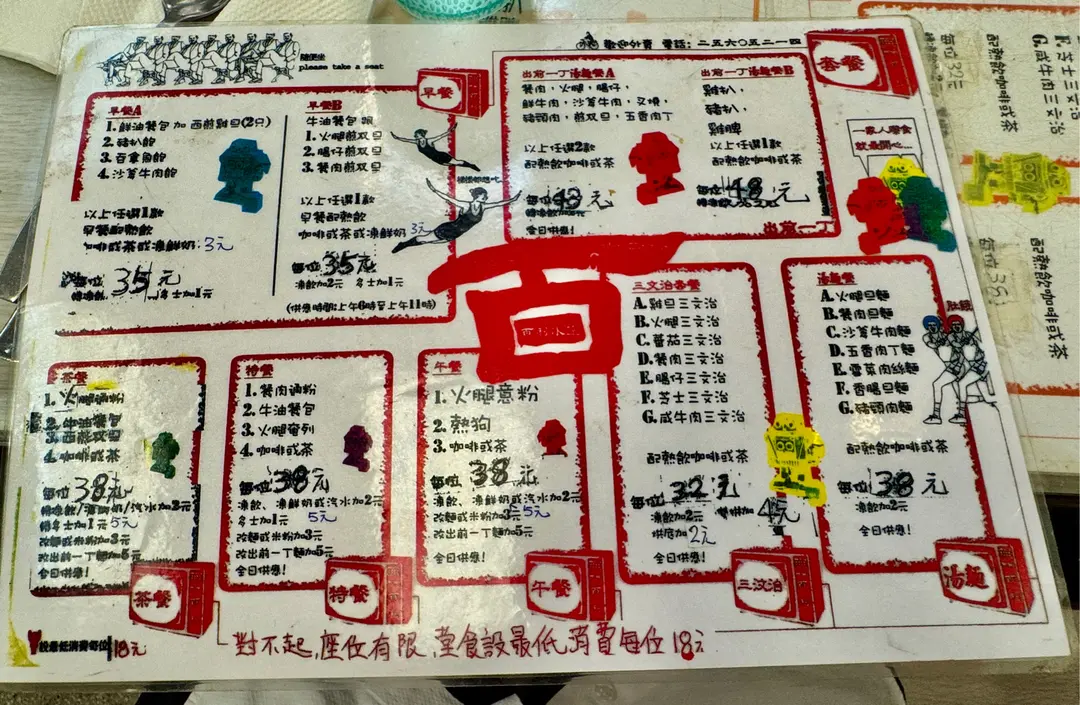 隨便坐
please take a seat
歡迎外賣 電話：二五六〇五二一四
早餐
早餐A
1. 鮮油餐包 加 西煎雞旦(2只)
2. 豬扒飽
3. 百拿魚飽
4. 沙爹牛肉飽
以上任選1款
早餐配熱飲
咖啡或茶或凍鮮奶：3元
每位 35元
早餐B
牛油餐包 跟
1. 火腿煎双旦
2. 腸仔煎双旦
3. 餐肉煎双旦
以上任選1款
早餐配熱飲
咖啡或茶或凍鮮奶 3元
每位 35元
凍飲加2元 多士加1元
(供應時間上午6時至上午11時)
套餐
出前一丁湯麵餐A
餐肉，火腿，腸仔，
鮮牛肉，沙爹牛肉，叉燒，
豬頭肉，煎双旦，五香肉丁
以上任選2款
配熱飲咖啡或茶
每位 48元
全日供應！
出前一丁湯麵餐B
雞扒，
豬扒，
雞脾
以上任選1款
配熱飲咖啡或茶
每位 48元
出前一丁
一家人齊食
就最開心...
百
茶餐
1. 火腿通粉
2. 牛油餐包
3. 西煎双旦
4. 咖啡或茶
每位 38元
轉多士加1元 5元
改麵或米粉加3元
改出前一丁麵加5元
全日供應！
茶餐
特餐
1. 餐肉通粉
2. 牛油餐包
3. 火腿奄列
4. 咖啡或茶
每位 38元
凍飲、凍鮮奶或汽水加2元
多士加1元 5元
改麵或米粉加3元
改出前一丁麵加5元
全日供應！
特餐
午餐
1. 火腿意粉
2. 熱狗
3. 咖啡或茶
每位 38元
凍飲、凍鮮奶或汽水加2元
改麵或米粉加3元 5元
改出前一丁麵加5元
全日供應！
午餐
三文治套餐
A. 雞旦三文治
B. 火腿三文治
C. 蕃茄三文治
D. 餐肉三文治
E. 腸仔三文治
F. 芝士三文治
G. 咸牛肉三文治
配熱飲咖啡或茶
每位 32元
凍飲加2元 4元
烘底加 2元
全日供應！
三文治
湯麵餐
A. 火腿旦麵
B. 餐肉旦麵
C. 沙爹牛肉麵
D. 五香肉丁麵
E. 雪菜肉絲麵
F. 香腸旦麵
G. 豬頭肉麵
配熱飲咖啡或茶
每位 38元
凍飲加2元
全日供應！
湯麵
設最低消費每位 18元
對不起，座位有限，堂食設最低消費每位18元
F. 芝士三文治
G. 咸牛肉三文治
配熱飲咖啡或茶
每位 32元
配熱飲咖啡或茶
每位 38元